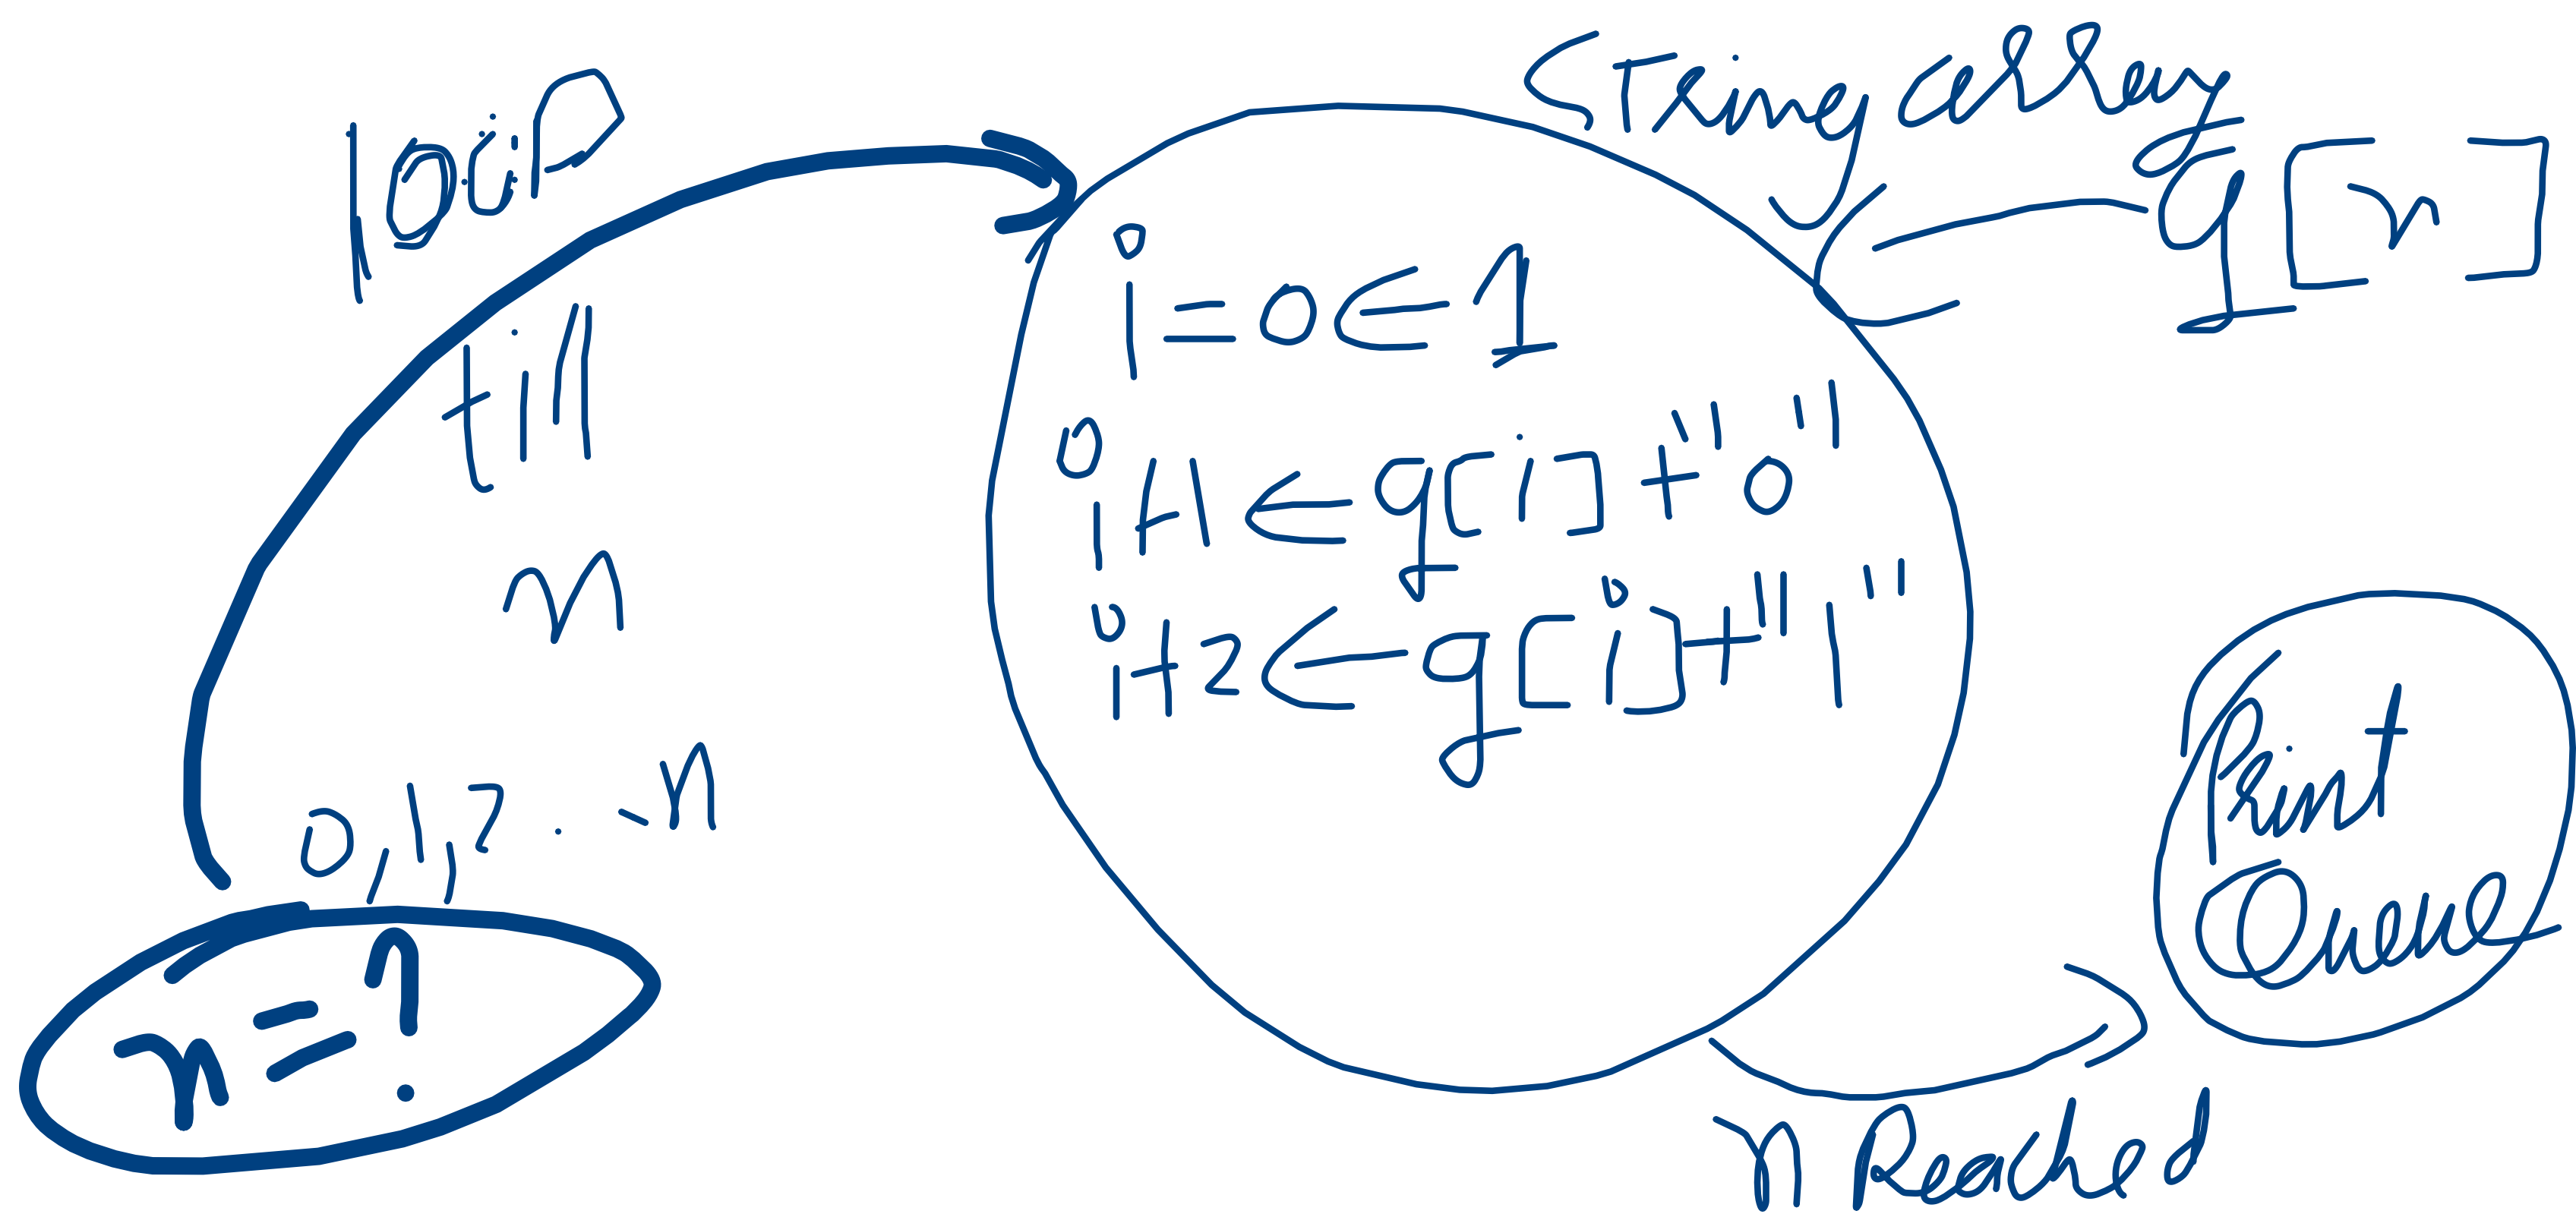 loop
till
n
0,1,2. -n
n=?
String array
q[n]
i=0←1
i+1←q[i]+"0"
i+2←q[i]+"1"
Print
Queue
n Reached